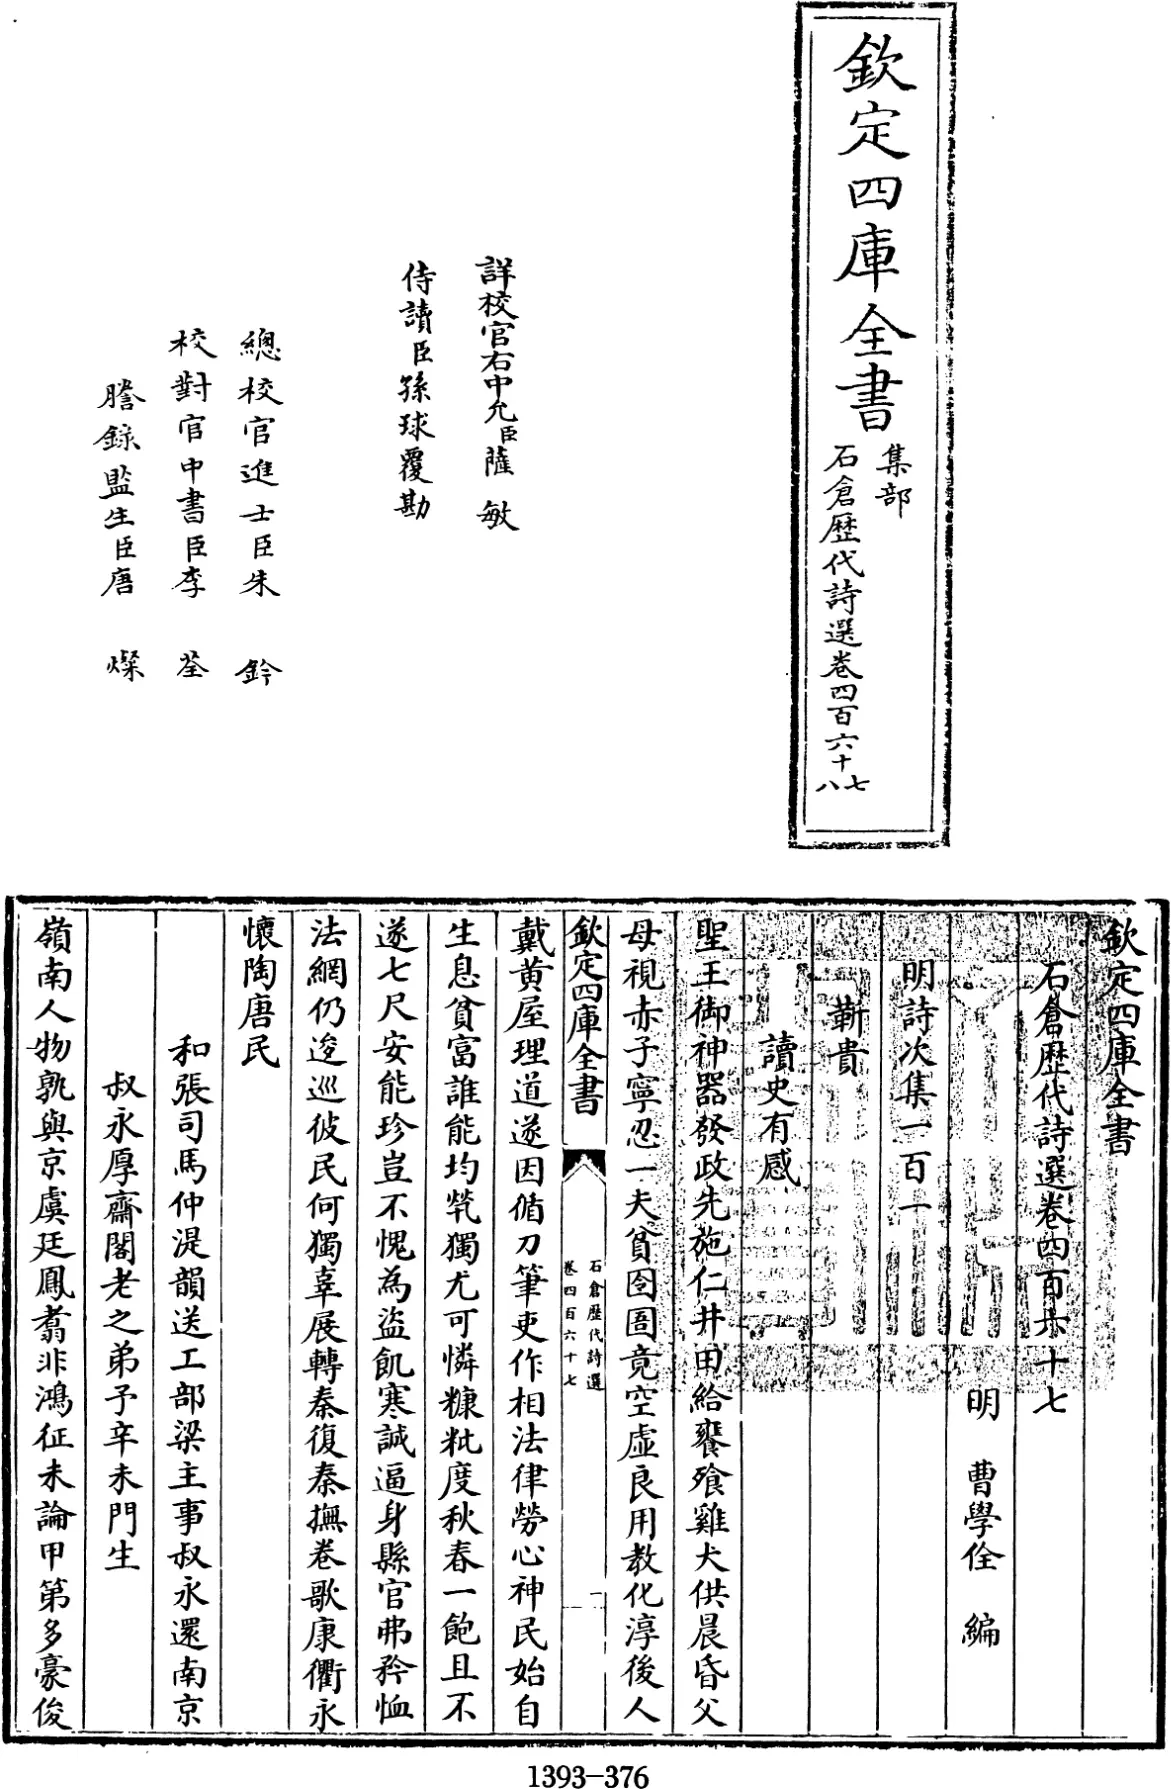 欽定四庫全書
集部
石倉歷代詩選卷四百六十七
八
詳校官右中允臣薩敏
侍讀臣孫球覆勘
總校官進士臣朱鈐
校對官中書臣李荃
謄錄監生臣唐燦
欽定四庫全書
石倉歷代詩選卷四百六十七
明 曹學佺 編
明詩次集一百一
靳貴
讀史有感
聖王御神器發政先施仁井田給饔飱雞犬供晨昏父
母視赤子寧忍一夫貧囹圄竟空虛良用教化淳後人
欽定四庫全書
石倉歷代詩選
卷四百六十七
一
戴黄屋理道遂因循刀筆吏作相法律勞心神民始自
生息貧富誰能均煢獨尤可憐糠粃度秋春一飽且不
遂七尺安能珍豈不愧為盜飢寒誠逼身縣官弗矜恤
法網仍逡巡彼民何獨辜展轉秦復秦撫卷歌康衢永
懷陶唐民
和張司馬仲湜韻送工部梁主事叔永還南京
叔永厚齋閣老之弟予辛未門生
嶺南人物孰與京虞廷鳳翥非鴻征未論甲第多豪俊
1393-376